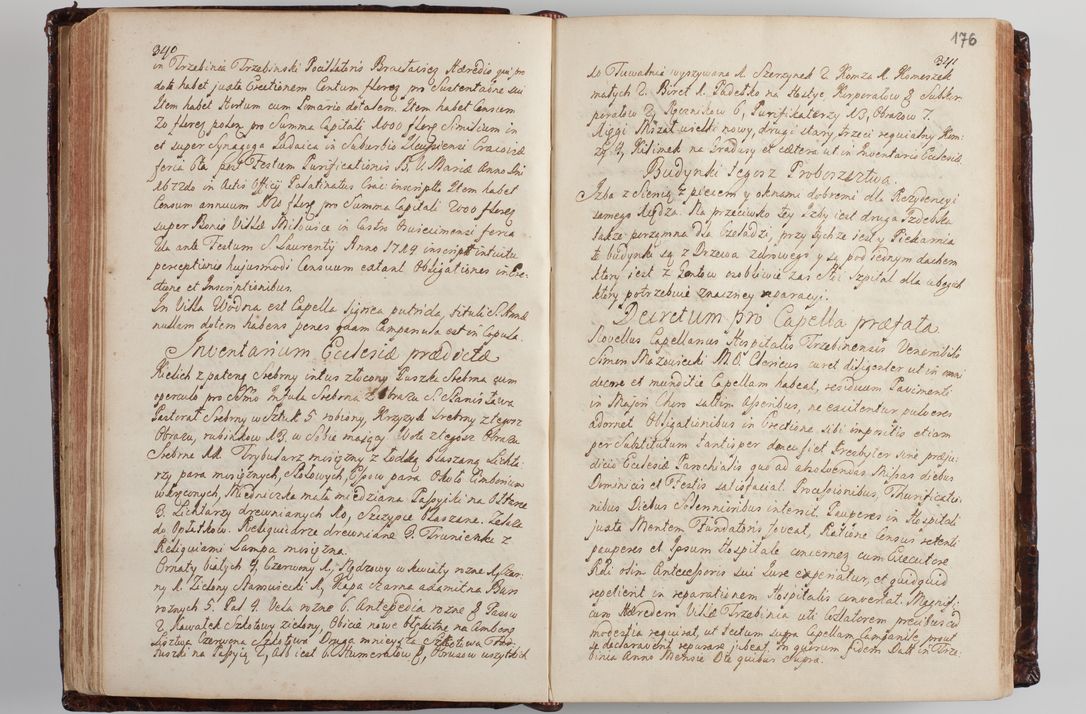 340
in Trzebinia Trzebinski Pocillatoris Braclavien Hæredis qui pro
dote habet juxta Erectionem Centum floren pro Sustentatione sui
Item habet Hortum cum Pomario dotalem. Item habet Censum
70 floren polon pro Summa Capitali 1000 floren Similium in
et super Synagoga Judaica in Suburbio Cracoviæ
feria 6ta post Festum Purificationis B. V. Mariæ Anno Dni
1672do in Actis Officij Palatinatus Crac inscripta Item habet
Censum annuum floren pro Summa Capitali 2000 floren
super Bonis Villæ Mitowice in Castro Oswiecimensi feria
ante Festum S. Laurentij Anno 1724 inscript intuitu
perceptionis hujusmodi Censuum extant Obligationes in Ere-
ctione et Inscriptionibus.
In Villa Wodna est Capella lignea putrida, tituli S. Annæ
nullam dotem habens penes quam Campanula est in Cupula.
Inventarium Ecclesiæ prædictæ
Kielich z pateną Srebrny intus złocony Puszka Srebrna cum
operculo pro Ssmo Infuła Srebrna z Obrazu S. Stanisława
Pastorał Srebrny w Sztuk 5 robiony, Krzyżyk Srebrny z tegosz
Obrazu, rubinkow 13. w Sobie maiący. Wota z tegosz Obrazu
Srebrne Trybularz mosiężny z Łodką blaszaną Lichta-
rzy para mosiężnych, Stołowych, para Około Cimborium
wkręconych, Miedniczka mała miedziana Passyjki na Ołtarze
3. Lichtarzy drewnianych 10, Szczypce blaszane.
do Opłatkow. Reliquiarze drewniane 2. Trunienka z
Reliquiami Lampa mosiężna.
Ornaty białych 4 Czerwony 1, Rządzowy w kwiaty rozne 1, Czar-
ny 1. Zielony Stamuiecki 1, Kapa czarna adamitna Burs
roznych 5. Pal 4. Vela rozne 6. Antepedia rozne 8 Pasow
2. Kawałek Szeletowy zielony, Obicie nowe błękitne na Ambonę
Czerwona Szeletowa, Druga mnieysza Szeletowa
na Passyją 2, Alb icat 6. Humerałow 8, Obrusow wszystkich

176
341
do Tuwalni wyszywane 1. Szerzynek 2. Komża 1. Komeszek
małych 2. Biret 1. Pudełko na Hostye Korporałow 8 Subkor-
porałow 3, Ręcznikow 6, Purifikaterzy 13, Obrazow 7.
Księgi Mszał wielki nowy, drugi stary trzeci requialny Kom-
ży 4, Kilimek na Gradusy et cætera ut in Inventario Ecclesiæ
Budynki Tegosz Proboszcztwa.
Izba z Sienią z piecem y oknami dobremi dla Rezydencyi
samego Xiędza. Na przeciwko tey Izby iest druga Izdebka
także porzemna dla Czeladzi, przy tychże iest y Piekarnia
te budynki są z Drzewa zurowego y są pod iednym dachem
ktory iest z Gontow osobliwie zaś Szpital dla ubogich
który potrzebuie znaczney reparacyi.
Decretum pro Capella præfata
Novellus Capellanus Hospitalis Trzebinensis Venerabilis
Simon Mazowiecki M. O. Clericus curet diligenter ut in omni
decore et munditie Capellam habeat, residuum Pavimenti
in Majori Choro saltim Asseribus, ne excitentur pulveres
adornet Obligationibus in Erectione sibi impositis etiam
per Substitutum tantisper donec fiet Presbyter sine præju-
dicio Ecclesiæ Parochialis quo ad absolvendas Missas diebus
Dominicis et Festis satisfaciat. Processionibus, Thurificatio-
nibus Diebus Solennioribus intersit. Pauperes in Hospitali
juxta Mentem Fundatoris foveat, Ratione Census retenti
pauperes et Ipsum Hospitale concernen cum Executore
Rdi olim Antecessoris sui Jure experiatur, et quidquid
repetierit in reparationem Hospitalis convertat. Magnifi-
cum Hæredem Villæ Trzebinia uti Collatorem, precibus ad
modestia requirat, ut tectum supra Capellam Campanile, prout
se declaraverit reparare jubeat. In quorum fidem Datt in Trze-
binia Anno Mensie Die quibus Supra.